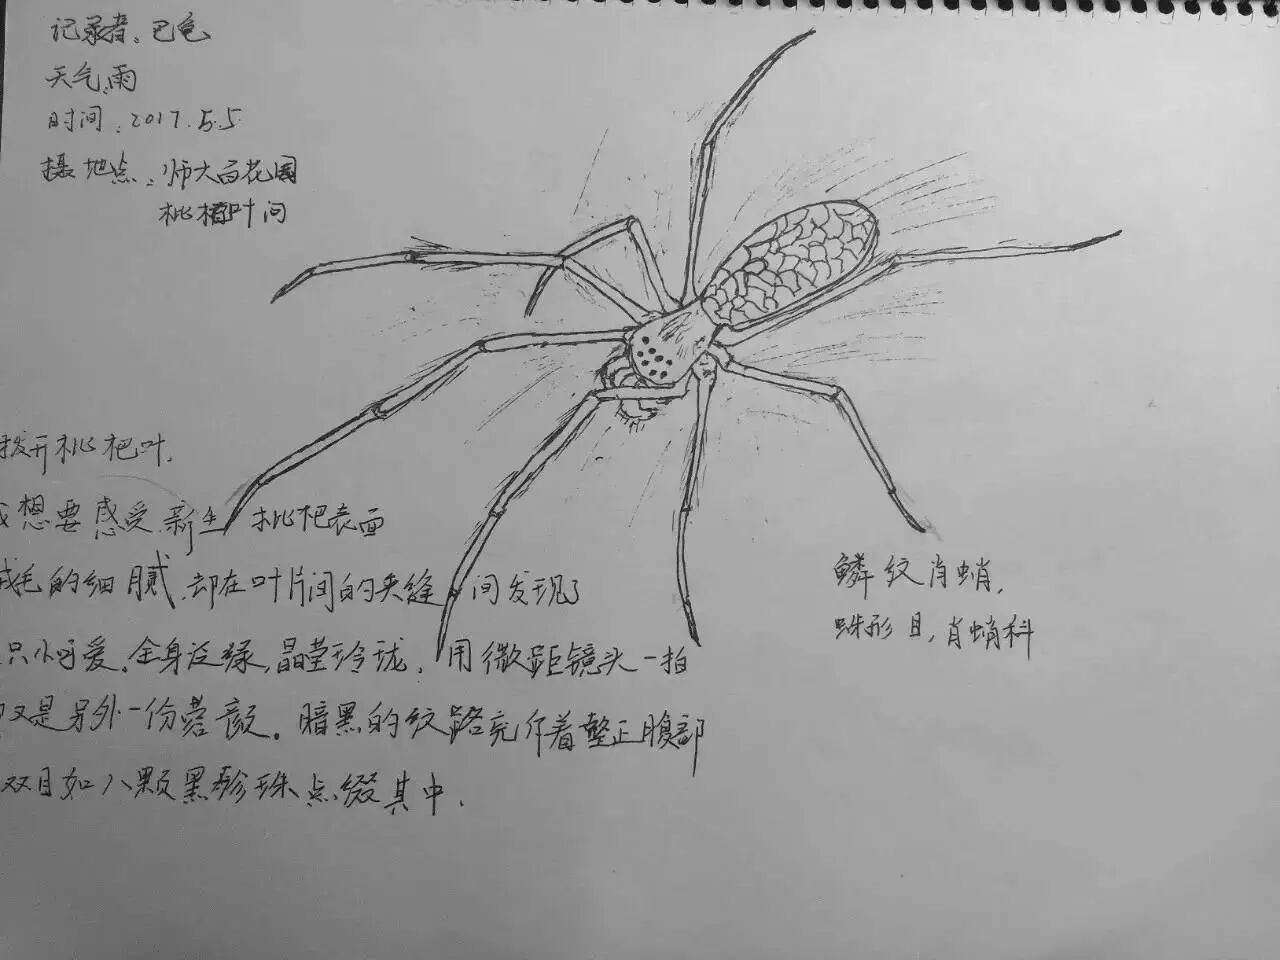 记录者：巴色
天气：雨
时间：2017.5.5
摄地点：师大百花园
枇杷叶间
拨开枇杷叶，
想要感受新生枇杷表面
绒毛的细腻，却在叶片间的夹缝间发现了
只小可爱。全身泛绿，晶莹玲珑，用微距镜头一拍
又是另外一份容颜。暗黑的纹路充斥着整正腹部
双目如八颗黑珍珠点缀其中，
鳞纹肖蛸，
蛛形目，肖蛸科